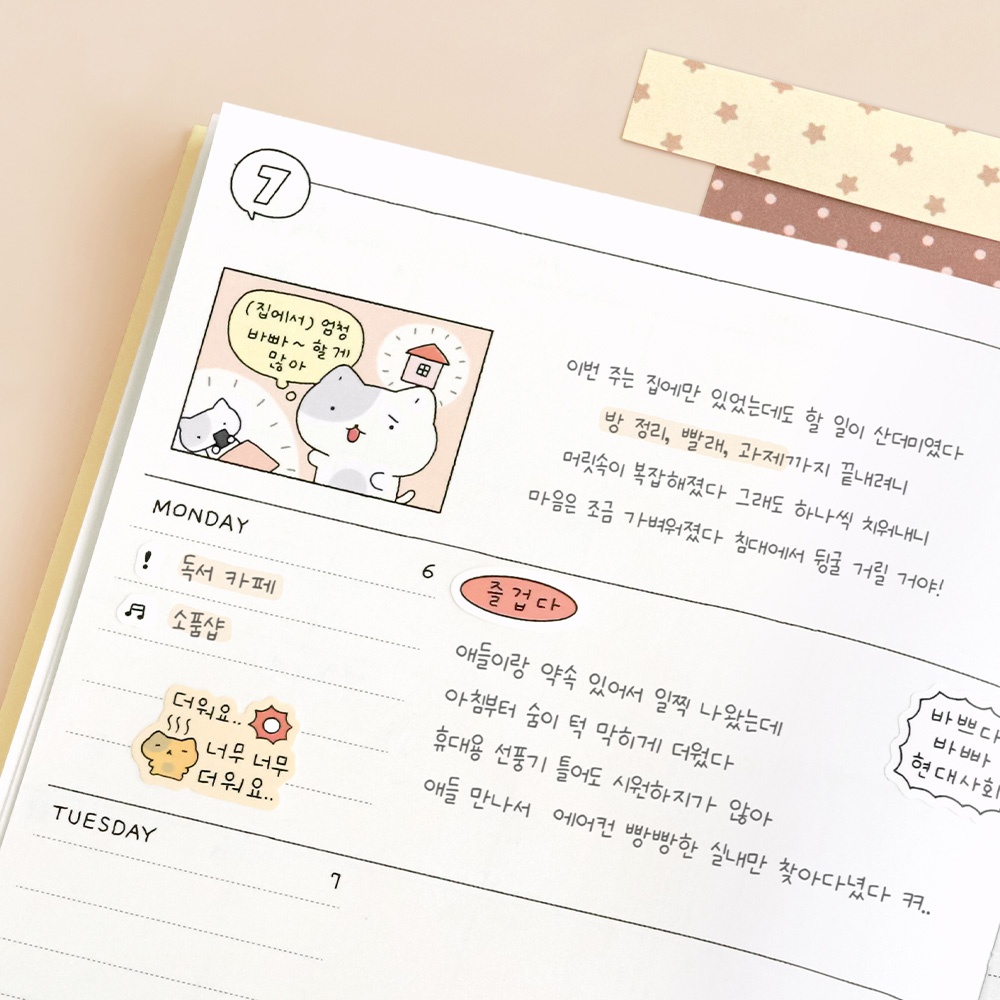 7
(집에서) 엄청
바빠~ 할 게
많아
이번 주는 집에만 있었는데도 할 일이 산더미였다
방 정리, 빨래, 과제까지 끝내려니
머릿속이 복잡해졌다 그래도 하나씩 치워내니
마음은 조금 가벼워졌다 침대에서 뒹굴 거릴 거야!
MONDAY
6
독서 카페
소품샵
더워요..
너무 너무
더워요..
즐겁다
애들이랑 약속 있어서 일찍 나왔는데
아침부터 숨이 턱 막히게 더웠다
휴대용 선풍기 틀어도 시원하지가 않아
애들 만나서 에어컨 빵빵한 실내만 찾아다녔다 ㅋㅋ..
바쁘다
바빠
현대사회
TUESDAY
7